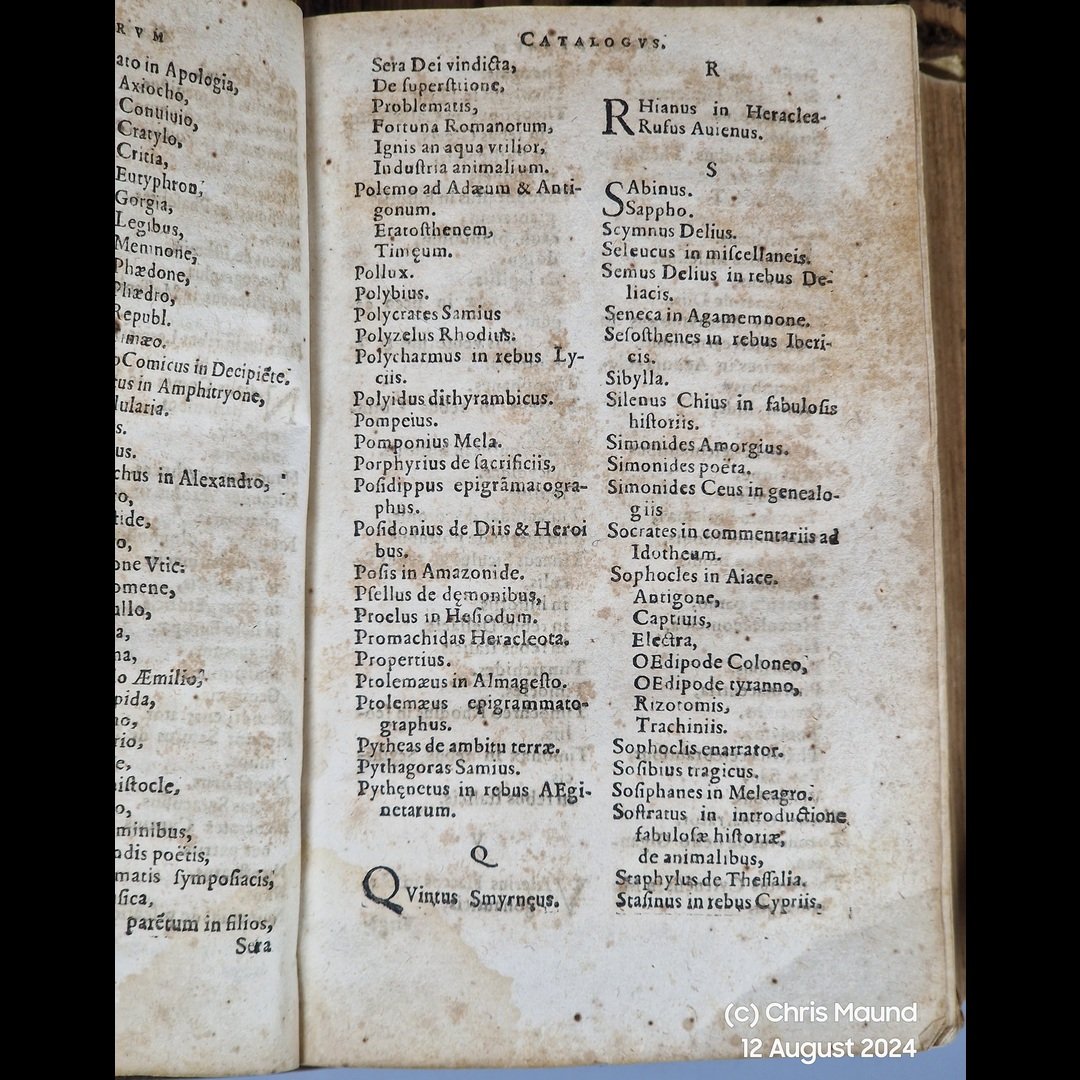 RVM
ato in Apologia,
Axiocho,
Conuiuio,
Cratylo,
Critia,
Eutyphron,
Gorgia,
Legibus,
Memnone,
Phædone,
Phædro,
Republ.
imæo.
oComicus in Decipiẽte.
tus in Amphitryone,
lularia.
s.
us.
chus in Alexandro,
ro,
tide,
o,
one Vtic:
omene,
ullo,
a,
na,
o Æmilio,
pida,
no,
rio,
e,
istocle,
o,
minibus,
ndis poëtis,
matis symposiacis,
sica,
parẽtum in filios,
Sera
CATALOGVS.
Sera Dei vindicta,
De superstitione,
Problematis,
Fortuna Romanorum,
Ignis an aqua vtilior,
Industria animalium.
Polemo ad Adæum & Anti-
gonum.
Eratosthenem,
Timęum.
Pollux.
Polybius.
Polycrates Samius
Polyzelus Rhodius.
Polycharmus in rebus Ly-
ciis.
Polyidus dithyrambicus.
Pompeius.
Pomponius Mela.
Porphyrius de sacrificiis,
Posidippus epigrãmatogra-
phus.
Posidonius de Diis & Heroi
bus.
Posis in Amazonide.
Psellus de dęmonibus,
Proclus in Hesiodum.
Promachidas Heracleota.
Propertius.
Ptolemæus in Almagesto.
Ptolemæus epigrammato-
graphus.
Pytheas de ambitu terræ.
Pythagoras Samius.
Pythęnetus in rebus AEgi-
netarum.
Q
QVintus Smyrnęus.
R
RHianus in Heraclea-
Rufus Auienus.
S
SAbinus.
Sappho.
Scymnus Delius.
Seleucus in miscellaneis.
Semus Delius in rebus De-
liacis.
Seneca in Agamemnone.
Sesosthenes in rebus Iberi-
cis.
Sibylla.
Silenus Chius in fabulosis
historiis.
Simonides Amorgius.
Simonides poëta.
Simonides Ceus in genealo-
giis
Socrates in commentariis ad
Idotheum.
Sophocles in Aiace.
Antigone,
Captiuis,
Electra,
OEdipode Coloneo,
OEdipode tyranno,
Rizotomis,
Trachiniis.
Sophoclis enarrator.
Sosibius tragicus.
Sosiphanes in Meleagro.
Sostratus in introductione
fabulosæ historiæ,
de animalibus,
Staphylus de Thessalia.
Stasinus in rebus Cypriis.
(c) Chris Maund
12 August 2024